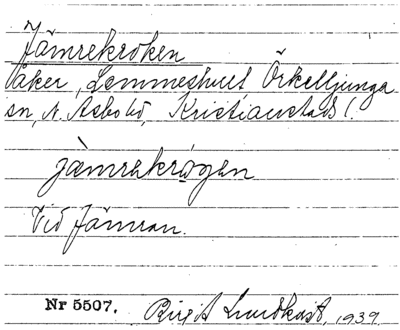 Jämrekroken
åker, Lemmeshult, Örkelljunga
sn, N. Åsbo hd, Kristianstads l.
jämrekrogen
Vid Jämran.
Nr 5507. Birgit Lundkvist, 1939.